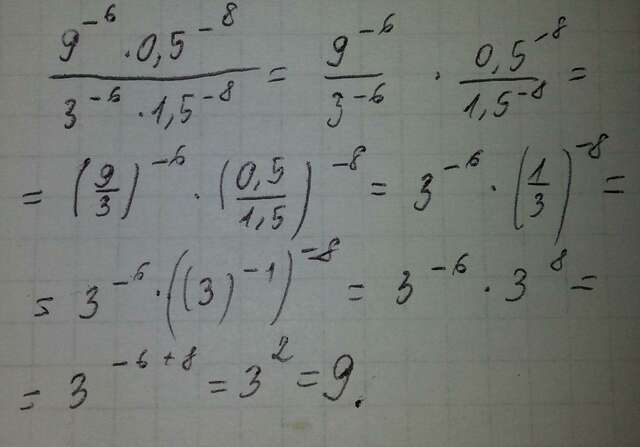 9^{-6} · 0,5^{-8} / 3^{-6} · 1,5^{-8} = 9^{-6} / 3^{-6} · 0,5^{-8} / 1,5^{-8} =
= (9/3)^{-6} · (0,5/1,5)^{-8} = 3^{-6} · (1/3)^{-8} =
= 3^{-6} · ((3)^{-1})^{-8} = 3^{-6} · 3^{8} =
= 3^{-6+8} = 3^{2} = 9.